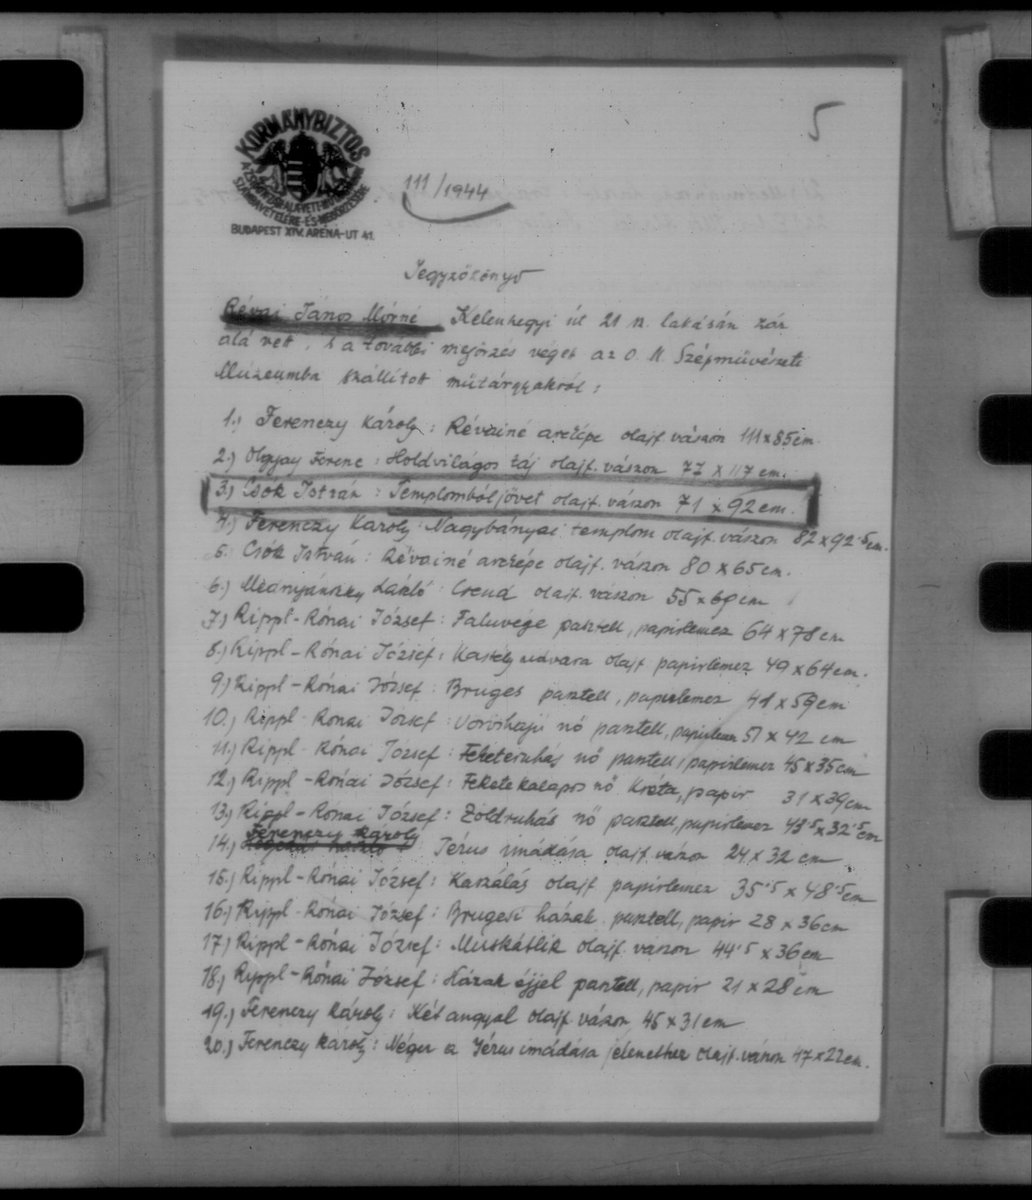 5
KORMÁNYBIZTOS
BUDAPEST XIV. ARÉNA-UT 41.
111/1944
Jegyzőkönyv
Révai János Mórné Kelenhegyi út 21 sz. lakásán zár
alá vett, s a további megőrzés végett az O. M. Szépművészeti
Múzeumba szállított műtárgyakról:
1.) Ferenczy Károly: Révainé arcképe olajf. vászon 111x85cm.
2.) Olgyay Ferenc: Holdvilágos táj olajf. vászon 77 x 117 cm.
3.) Csók István: Templomból jövet olajf. vászon 71 x 92 cm.
4.) Ferenczy Károly: Nagybányai templom olajf. vászon 82x92.5cm.
5. Csók István: Révainé arcképe olajf. vászon 80 x 65 cm.
6.) Mednyánszky László: Csend olajf. vászon 55 x 69 cm
7.) Rippl-Rónai József: Faluvége pasztell, papirlemez 64x78 cm
8.) Rippl-Rónai József: Kastély udvara olajf papirlemez 49 x 64 cm.
9.) Rippl-Rónai József: Bruges pasztell, papirlemez 41 x 59 cm
10.) Rippl-Rónai József: Vöröshajú nő pasztell, papirlemez 51 x 42 cm
11.) Rippl-Rónai József: Feketeruhás nő pasztell, papirlemez 45x35cm
12.) Rippl-Rónai József: Feketekalapos nő Kréta, papir 31 x 39cm
13.) Rippl-Rónai József: Zöldruhás nő pasztell, papirlemez 43.5x32.5cm
14.) Ferenczy Károly Jézus imádása olajf. vászon 24 x 32 cm
15.) Rippl-Rónai József: Kaszálás olajf papirlemez 35.5 x 48.5cm
16.) Rippl-Rónai József: Brugesi házak pasztell, papir 28 x 36cm
17.) Rippl-Rónai József: Muskátlik olajf. vászon 44.5 x 36 cm
18.) Rippl-Rónai József: Házak éjjel pasztell, papir 21 x 28 cm
19.) Ferenczy Károly: Két angyal olajf. vászon 45 x 31 cm
20.) Ferenczy Károly: Néger a Jézus imádása jelenethez olajf. vászon 47x22cm.